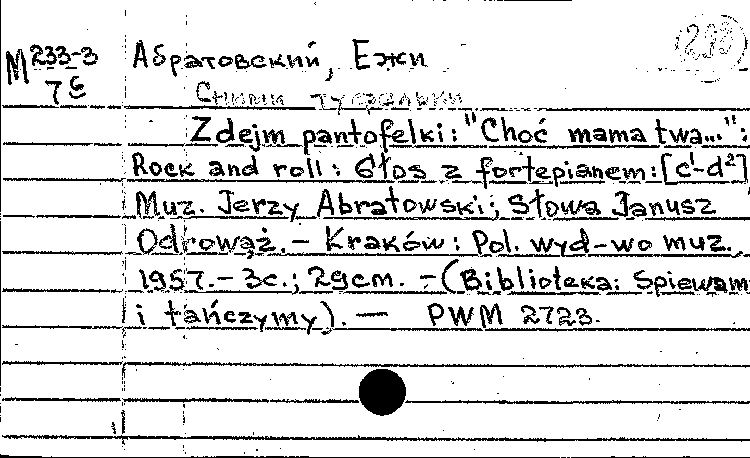 M 233-3
7 6
293
Абратовский, Ежи
Сними туфельки
Zdejm pantofelki: "Choć mama twa...":
Rock and roll: Głos z fortepianem: [c¹-d²]
Muz. Jerzy Abratowski; Słowa Janusz
Odrowąż. – Kraków: Pol. wyd-wo muz.,
1957. – 3c.; 29cm. – (Biblioteka: Śpiewam
i tańczymy). — PWM 2723.